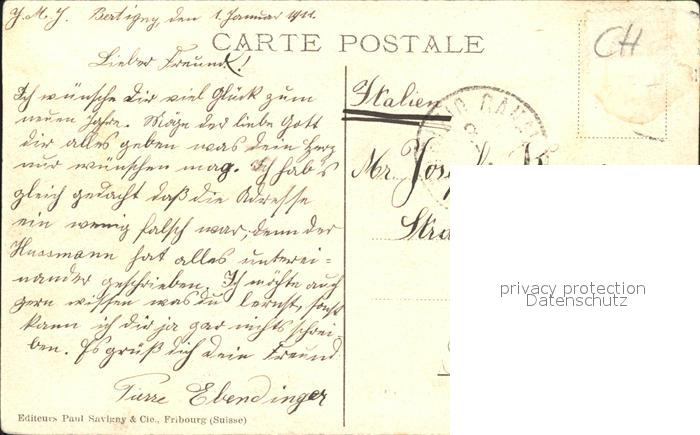 J. M. J. Bertigny, den 1. Januar 1911.
CARTE POSTALE
Lieber Freund!
Ich wünsche dir viel Glück zum
neuen Jahre. Möge der liebe Gott
dir alles geben was dein Herz
nur wünschen mag. Ich hab's
gleich gedacht daß die Adresse
ein wenig falsch war, denn der
Hussmann hat alles unterei-
nander geschrieben. Ich möchte auch
gern wissen was du lernst, sonst
kann ich dir ja gar nichts schrei
ben. Es grüßt dich dein Freund
Pierre Ebendinger
Editeurs Paul Savigny & Cie., Fribourg (Suisse)
CH
Italien
Mr.
privacy protection
Datenschutz